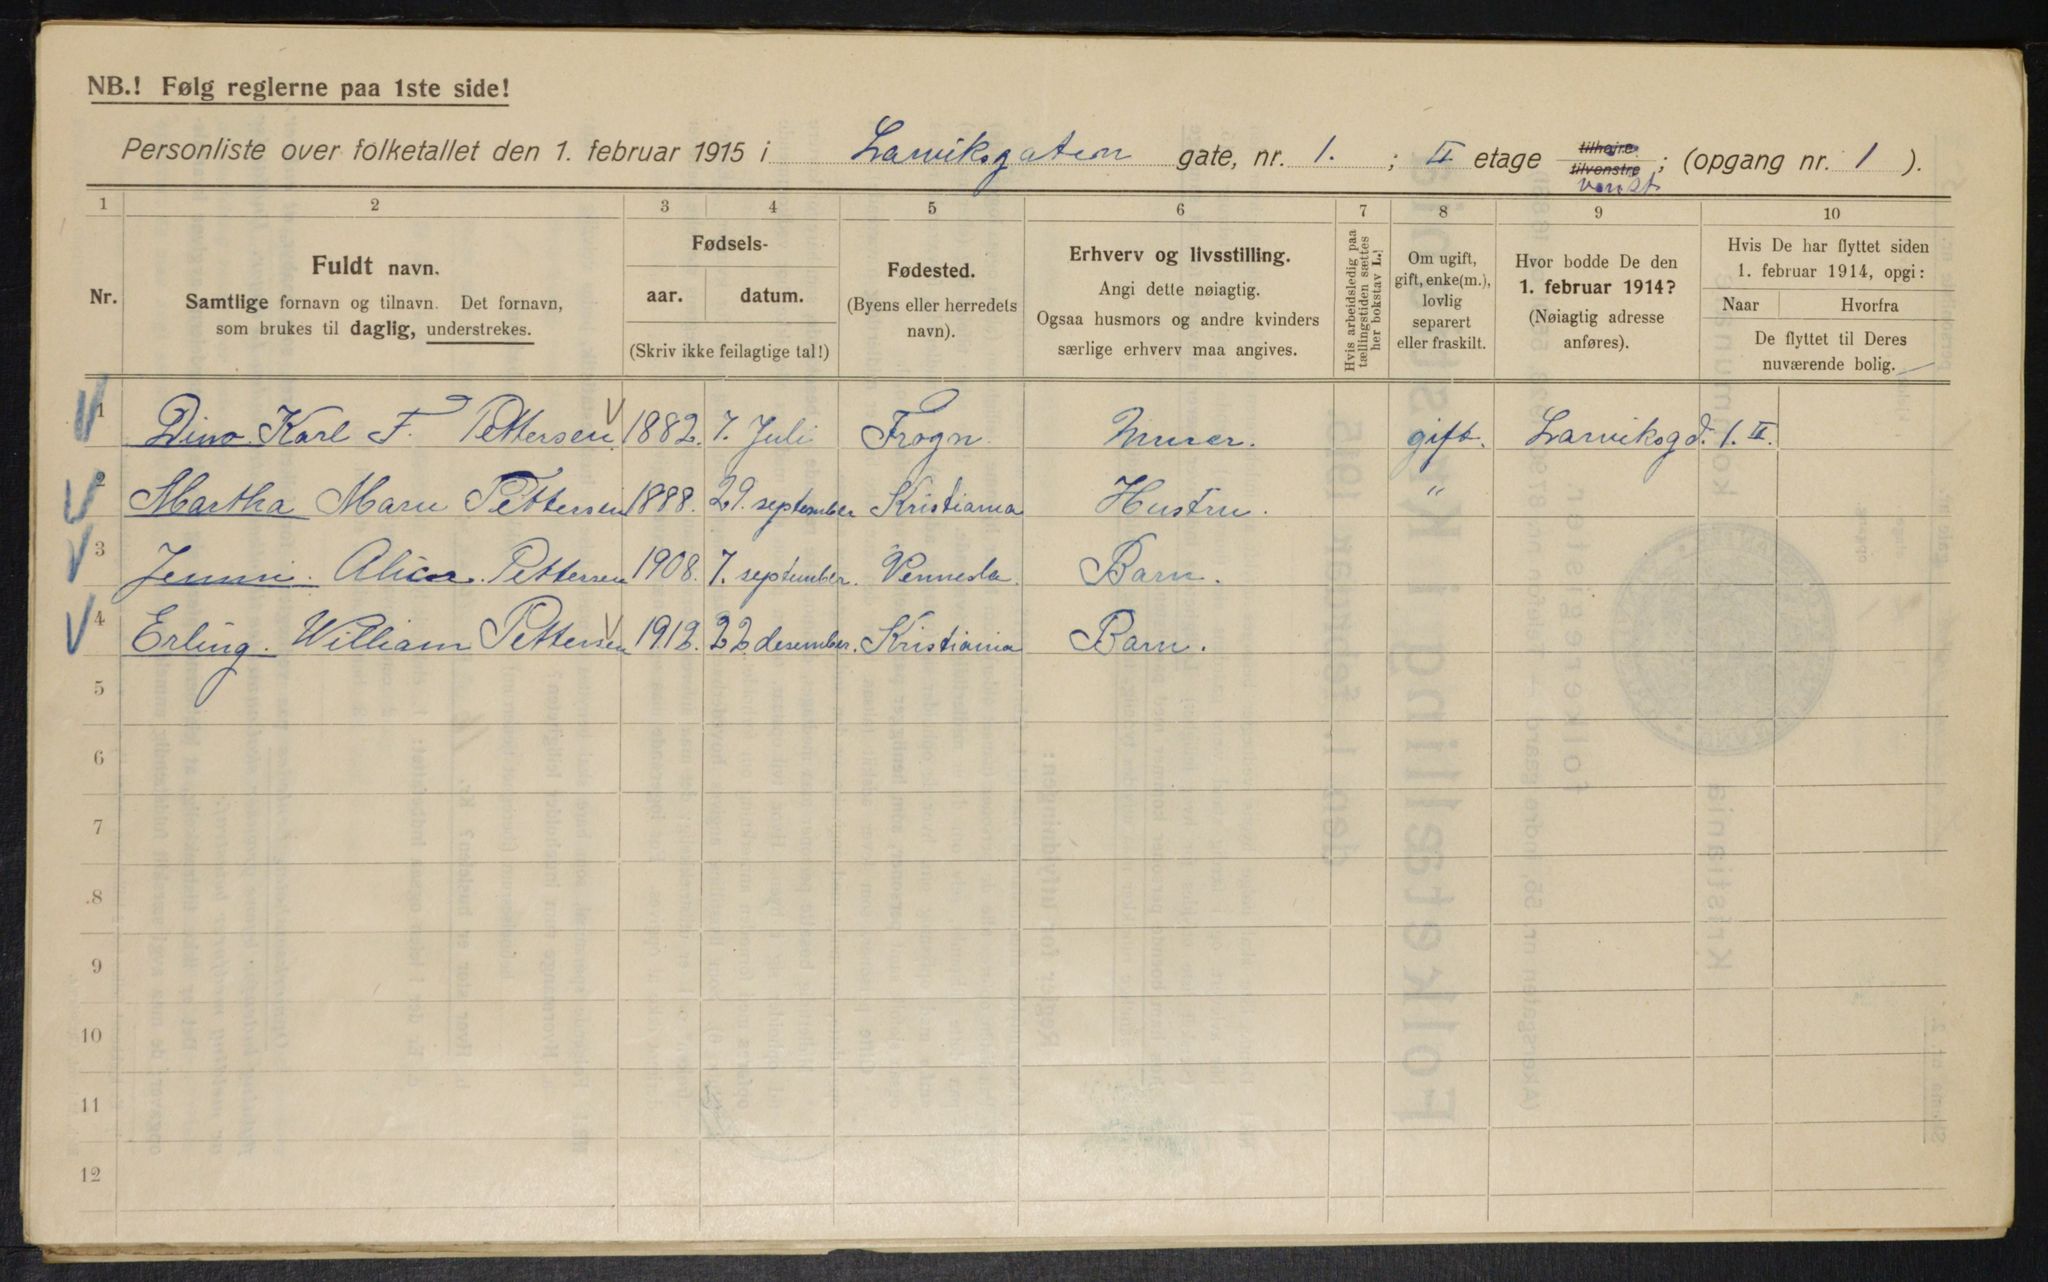 NB.! Følg reglerne paa 1ste side!
Personliste over folketallet den 1. februar 1915 i Larviksgaten gate, nr. 1. ; II etage tilhøjre tilvenstre ; (opgang nr. 1 ).
1 2 3 4 5 6 7 8 9 10
Nr.
Fuldt navn.
Samtlige fornavn og tilnavn. Det fornavn,
som brukes til daglig, understrekes.
Fødsels-
aar. datum.
(Skriv ikke feilagtige tal!)
Fødested.
(Byens eller herredets
navn).
Erhverv og livsstilling.
Angi dette nøiagtig.
Ogsaa husmors og andre kvinders
særlige erhverv maa angives.
Hvis arbeidsledig paa
tællingstiden sættes
her bokstav L.!
Om ugift,
gift, enke(m.),
lovlig
separert
eller fraskilt.
Hvor bodde De den
1. februar 1914?
(Nøiagtig adresse
anføres).
Hvis De har flyttet siden
1. februar 1914, opgi:
Naar Hvorfra
De flyttet til Deres
nuværende bolig.
1 Dino Karl F. Pettersen 1882. 7. Juli Frogn Murer. gift. Larviksgd. 1. II.
2 Martha Marie Pettersen 1888. 29. september Kristiania Hustru. "
3 Jenni. Alice. Pettersen 1908. 7. september. Vennesla. Barn.
4 Erling. William Pettersen 1912. 22 desember. Kristiania Barn.
5
6
7
8
9
10
11
12